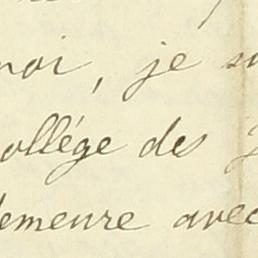 moi, je
collége des
demeure avec